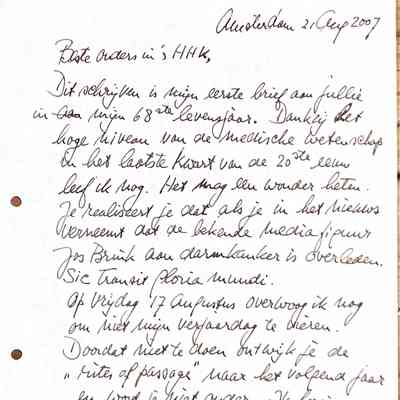 Amsterdam 21 Aug 2007
Beste orders in 's HHK,
Dit schrijven is mijn eerste brief aan jullie
in aan mijn 68ste levensjaar. Dankzij het
hoge niveau van de medische wetenschap
in het laatste kwart van de 20ste eeuw
leef ik nog. Het mag een wonder heten.
Je realiseert je dat als je in het nieuws
verneemt dat de bekende mediafiguur
Jos Brink aan darmkanker is overleden.
Sic Transit Gloria mundi.
Op Vrijdag 17 Augustus overwoog ik nog
om niet mijn verjaardag te vieren.
Door dat niet te doen ontwijk je de
"rites of passage" naar het volgend jaar
en word je niet ouder.